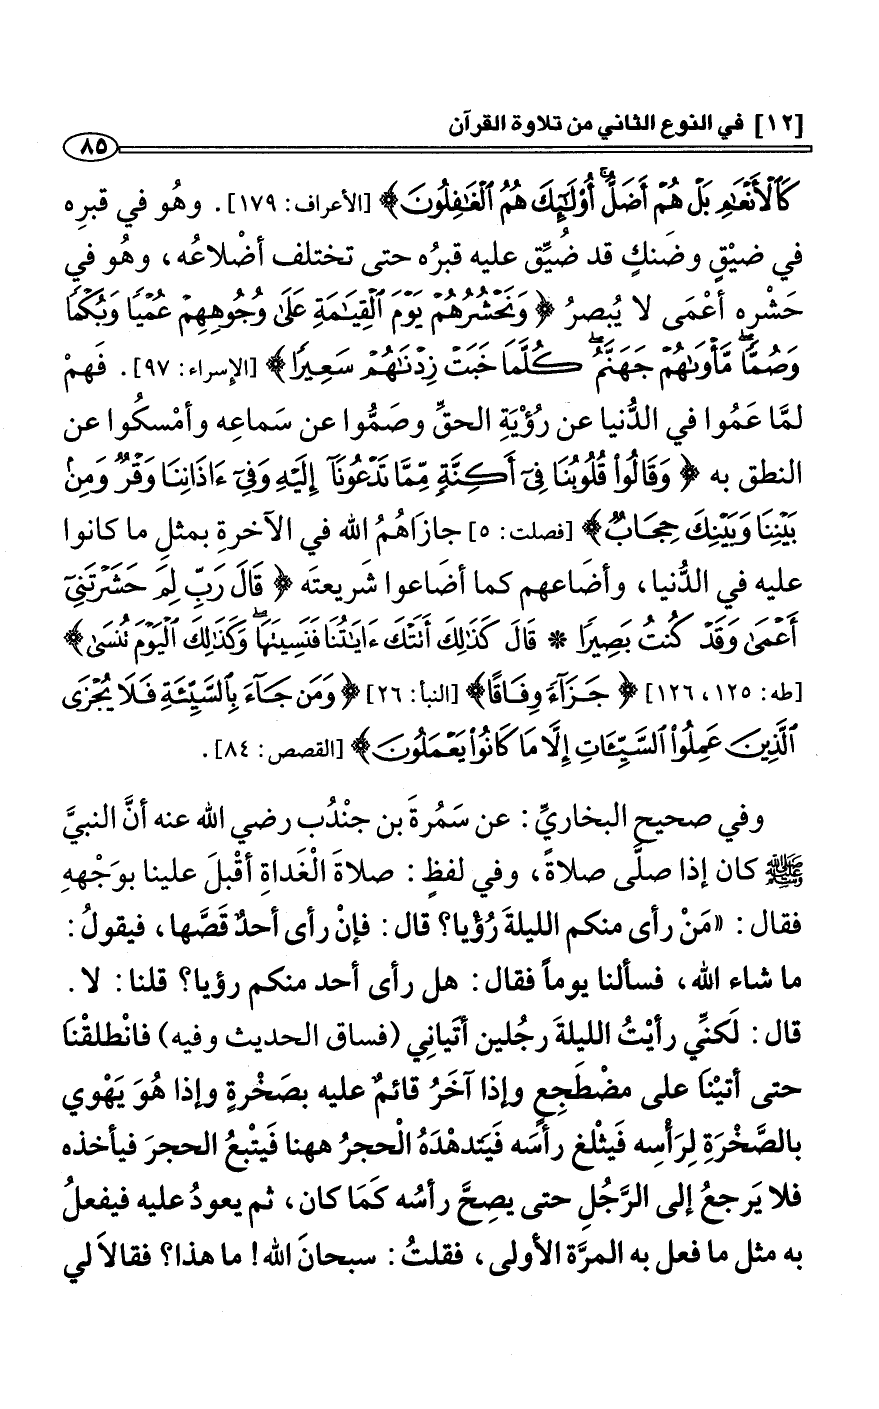 [١٢] في النوع الثاني من تلاوة القرآن
٨٥
كَٱلْأَنْعَٰمِ بَلْ هُمْ أَضَلُّ ۚ أُو۟لَٰٓئِكَ هُمُ ٱلْغَٰفِلُونَ﴾ [الأعراف: ١٧٩]. وهُو في قبرِه
في ضيْقٍ وضَنكٍ قد ضُيِّق عليه قبرُه حتى تختلف أضْلاعُه، وهُو في
حَشْرِه أعْمَى لا يُبصرُ ﴿وَنَحْشُرُهُمْ يَوْمَ ٱلْقِيَٰمَةِ عَلَىٰ وُجُوهِهِمْ عُمْيًا وَبُكْمًا
وَصُمًّا ۖ مَّأْوَىٰهُمْ جَهَنَّمُ ۖ كُلَّمَا خَبَتْ زِدْنَٰهُمْ سَعِيرًا﴾ [الإسراء: ٩٧]. فَهمْ
لمَّا عَمُوا في الدُّنيا عن رُؤْيَةِ الحقِّ وصَمُّوا عن سَماعِه وأمْسكُوا عن
النطق به ﴿وَقَالُوا۟ قُلُوبُنَا فِىٓ أَكِنَّةٍ مِّمَّا تَدْعُونَآ إِلَيْهِ وَفِىٓ ءَاذَانِنَا وَقْرٌ وَمِنۢ
بَيْنِنَا وَبَيْنِكَ حِجَابٌ﴾ [فصلت: ٥] جازَاهُمُ الله في الآخرةِ بمثلِ ما كانوا
عليه في الدُّنيا، وأضَاعهم كما أضَاعوا شَريعتَه ﴿قَالَ رَبِّ لِمَ حَشَرْتَنِىٓ
أَعْمَىٰ وَقَدْ كُنتُ بَصِيرًا * قَالَ كَذَٰلِكَ أَتَتْكَ ءَايَٰتُنَا فَنَسِيتَهَا ۖ وَكَذَٰلِكَ ٱلْيَوْمَ تُنسَىٰ﴾
[طه: ١٢٥، ١٢٦] ﴿جَزَآءً وِفَاقًا﴾ [النبأ: ٢٦] ﴿وَمَن جَآءَ بِٱلسَّيِّئَةِ فَلَا يُجْزَى
ٱلَّذِينَ عَمِلُوا۟ ٱلسَّيِّـَٔاتِ إِلَّا مَا كَانُوا۟ يَعْمَلُونَ﴾ [القصص: ٨٤].
وفي صحيح البخاريِّ: عن سَمُرةَ بن جنْدُب رضي الله عنه أنَّ النبيَّ
ﷺ كان إذا صلَّى صلاةً، وفي لفظٍ: صلاةَ الْغَداةِ أقْبلَ علينا بوَجْههِ
فقال: «مَنْ رأى منكم الليلةَ رُؤْيا؟ قال: فإنْ رأى أحدٌ قَصَّها، فيقولُ:
ما شاء الله، فسألنا يوماً فقال: هل رأى أحد منكم رؤيا؟ قلنا: لا.
قال: لَكنِّي رأيْتُ الليلةَ رجُلين أتَيانِي (فساق الحديث وفيه) فانْطلقْنَا
حتى أتيْنَا على مضْطَجِعٍ وإذا آخَرُ قائمٌ عليه بصَخْرةٍ وإذا هُوَ يَهْوِي
بالصَّخْرَةِ لِرَأْسِه فَيثْلغ رأسَه فَيَتدهْدَهُ الْحجرُ ههنا فَيتْبعُ الحجرَ فيأخذه
فلا يَرجعُ إلى الرَّجُلِ حتى يصِحَّ رأسُه كَمَا كان، ثم يعودُ عليه فيفعلُ
به مثل ما فعل به المرَّة الأولى، فقلتُ: سبحانَ الله! ما هذا؟ فقالاَ لي